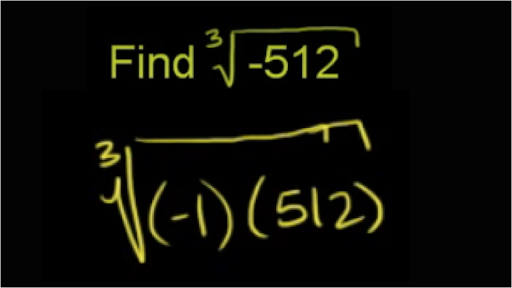 Find ∛-512
∛(-1)(512)